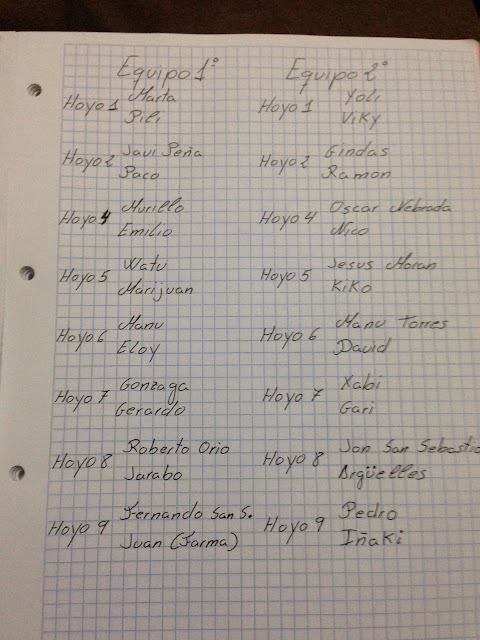 Equipo 1º Equipo 2º
Hoyo 1 Marta Hoyo 1 Yoli
Pili Viky
Hoyo 2 Javi Peña Hoyo 2 Gindas
Paco Ramon
Hoyo 4 Murillo Hoyo 4 Oscar Nebrada
Emilio Nico
Hoyo 5 Watu Hoyo 5 Jesus Moran
Marijuan Kiko
Hoyo 6 Manu Hoyo 6 Manu Torres
Eloy David
Hoyo 7 Gonzaga Hoyo 7 Xabi
Gerardo Gari
Hoyo 8 Roberto Orio Hoyo 8 Jon San Sebastia
Jarabo Argüelles
Hoyo 9 Fernando San S. Hoyo 9 Pedro
Juan (Farma) Iñaki